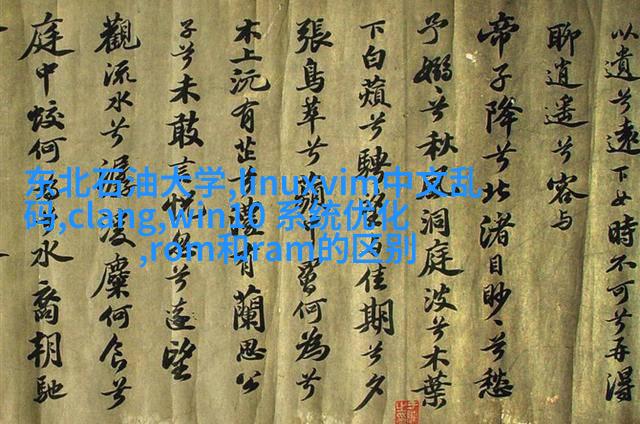 以遺兮遠下女時不可兮再得
聊逍遙兮容與
帝子降兮北渚目眇〻兮愁
予嫋〻兮秋風洞庭波兮木葉
下白蘋兮騁望佳期兮夕
張鳥萃兮蘋中罾何為兮
木上沅有芷兮醴有蘭思公
子兮未敢言怳兮遠望
觀流水兮潺湲麋何食兮
庭中蛟何為水裔朝馳
东北石油大学,linuxvim中文乱
码,clang,win10 系统优化
,rom和ram的区别